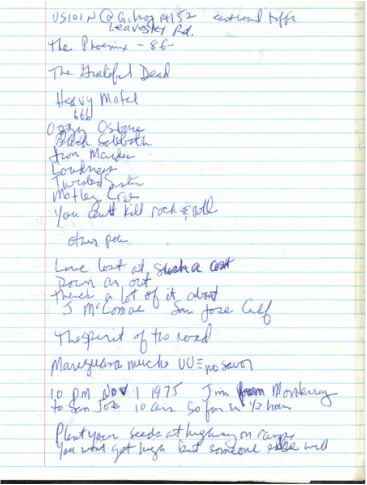 US101N @ Gilroy Rt 152 eastbound
Leavesley Rd.
The Phoenix - 86 -
The Grateful Dead
Heavy Metal
666
Ozzy Osbourne
Black Sabbath
Iron Maiden
Loudness
Twisted Sister
Motley Crue
You can't kill rock & roll
other pole
Love lost at such a cost
Down an out
There's a lot of it about
J McComas San Jose Calf
The spirit of the road
Maraguana mucho no savor
10 PM Nov 1 1975 Jim from Monterrey
to San Jose 10 cars so far in 1/2 hour
Plant your seeds at highway on ramps
You wont get high but someone else will